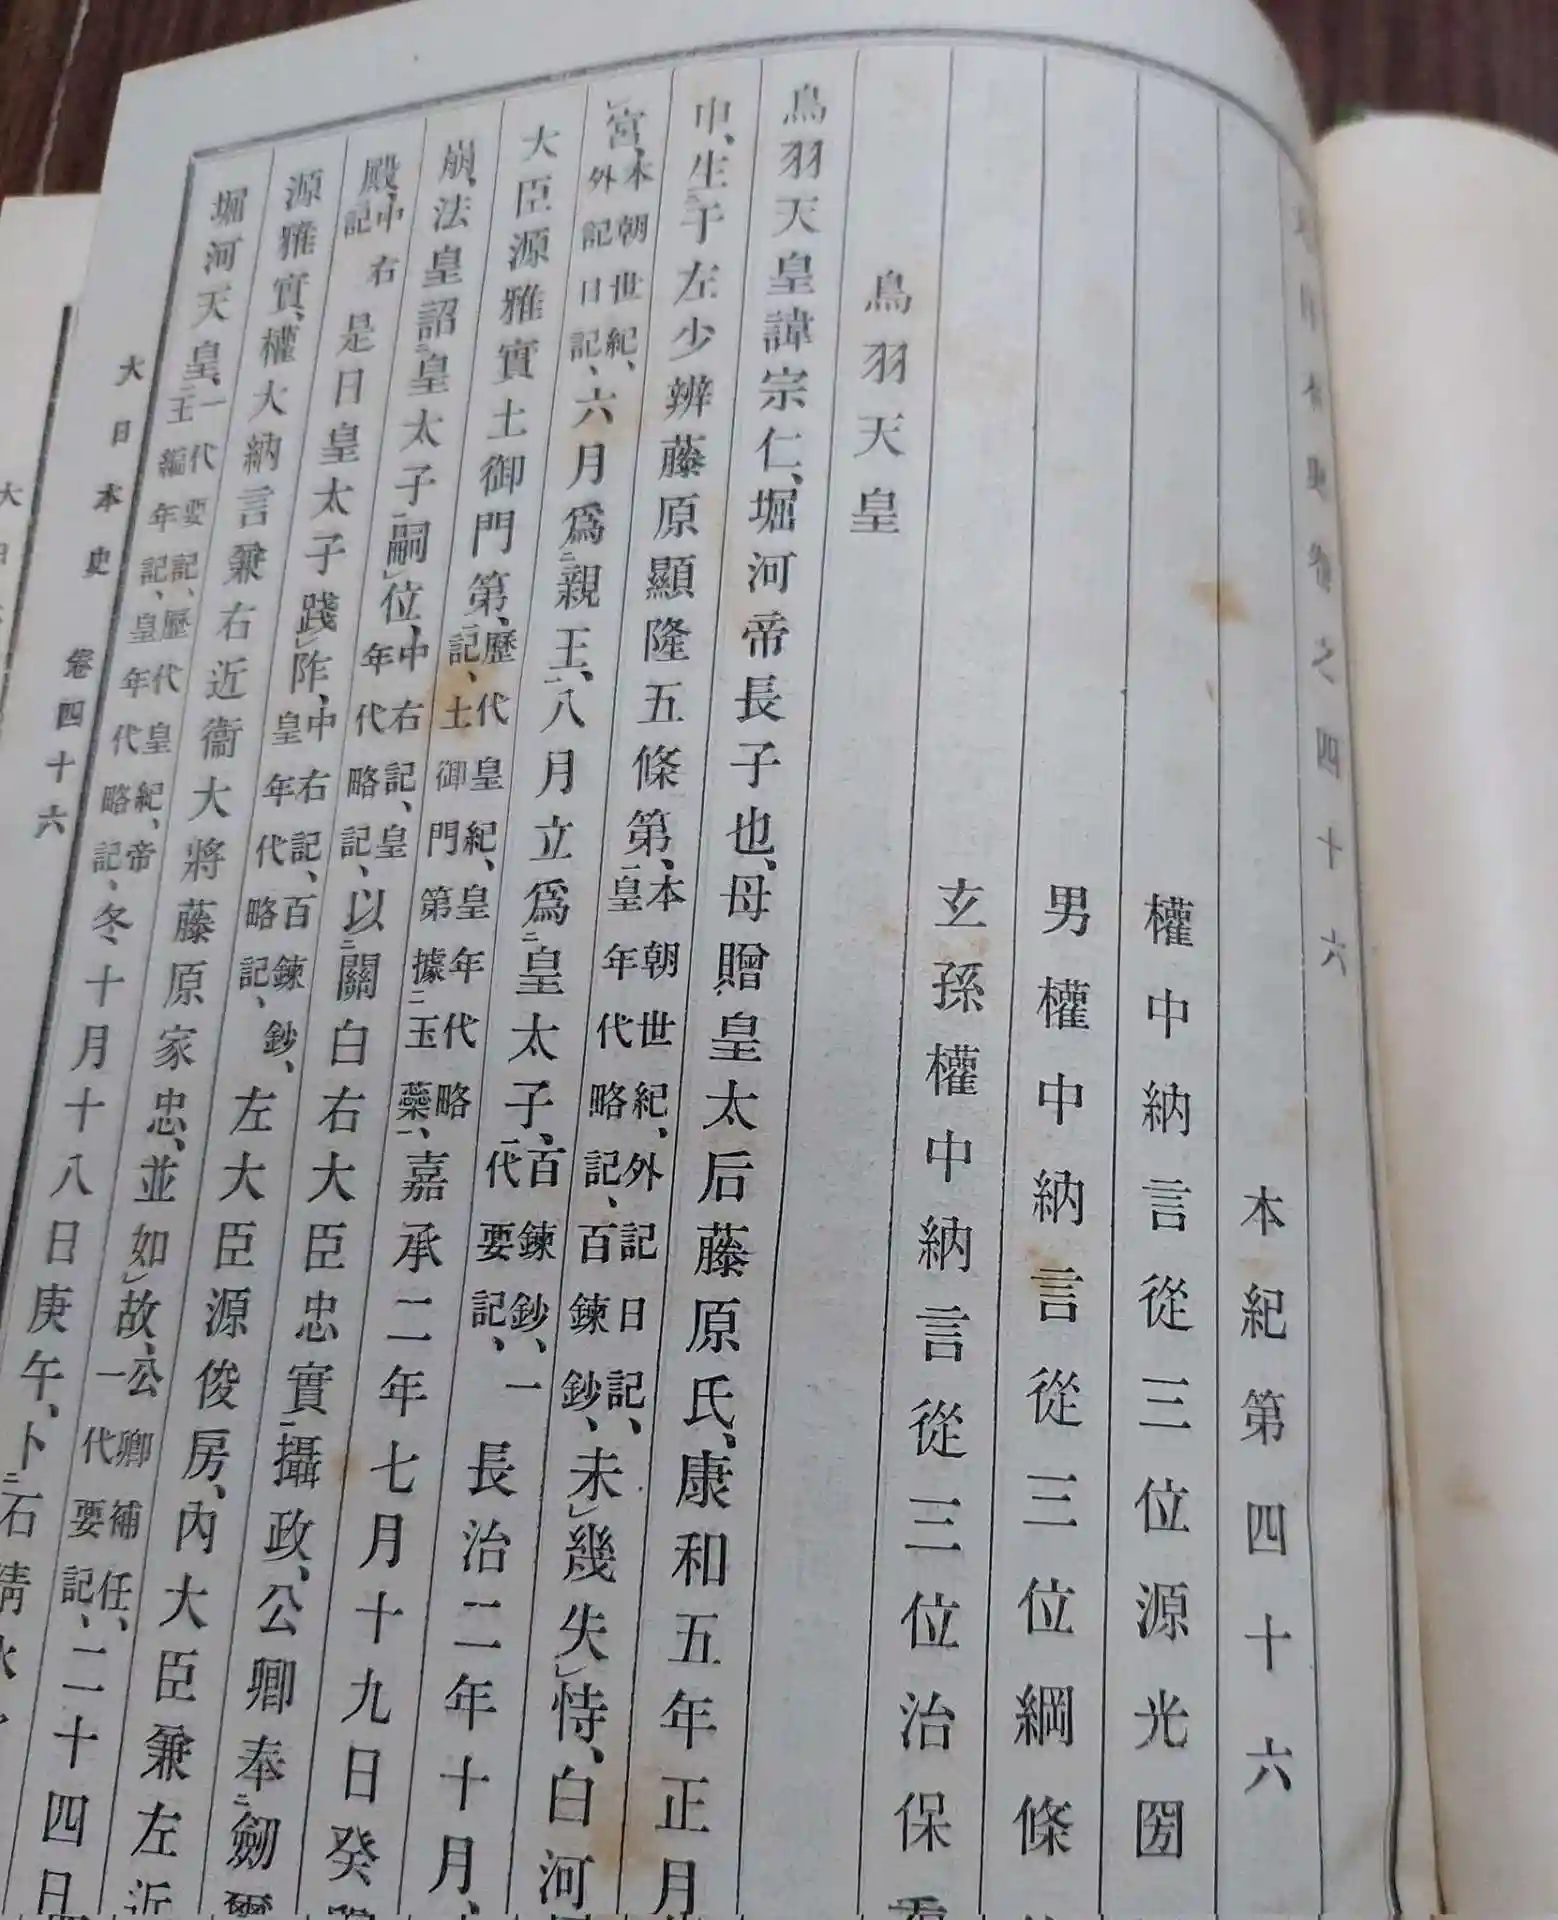 之四十六
本紀第四十六
權中納言從三位源光圀
男權中納言從三位綱條
玄孫權中納言從三位治保
鳥羽天皇
鳥羽天皇諱宗仁、堀河帝長子也、母贈皇太后藤原氏、康和五年正月
生于左少辨藤原顯隆五條第、本朝世紀、外記日記、皇年代略記、百鍊鈔、未幾失恃、白河
宮、本朝世紀、外記日記、六月爲二親王一、八月立爲二皇太子一、百鍊鈔、一代要記、長治二年十月、
大臣源雅實土御門第、歷代皇紀、皇年代略記、土御門第據二玉蘂一、嘉承二年七月十九日癸
崩、法皇詔二皇太子一嗣位、中右記、皇年代略記、以二關白右大臣忠實一攝政、公卿奉二劒璽
殿、中右記是日皇太子踐阼、中右記、百鍊鈔、皇年代略記、左大臣源俊房、內大臣兼左近
源雅實、權大納言兼右近衞大將藤原家忠、並如故、公卿補任、一代要記、二十四日
堀河天皇、一代要記、歷代皇紀、帝王編年記、皇年代略記、冬十月十八日庚午、卜二石淸水
大日本史 卷四十六
大日